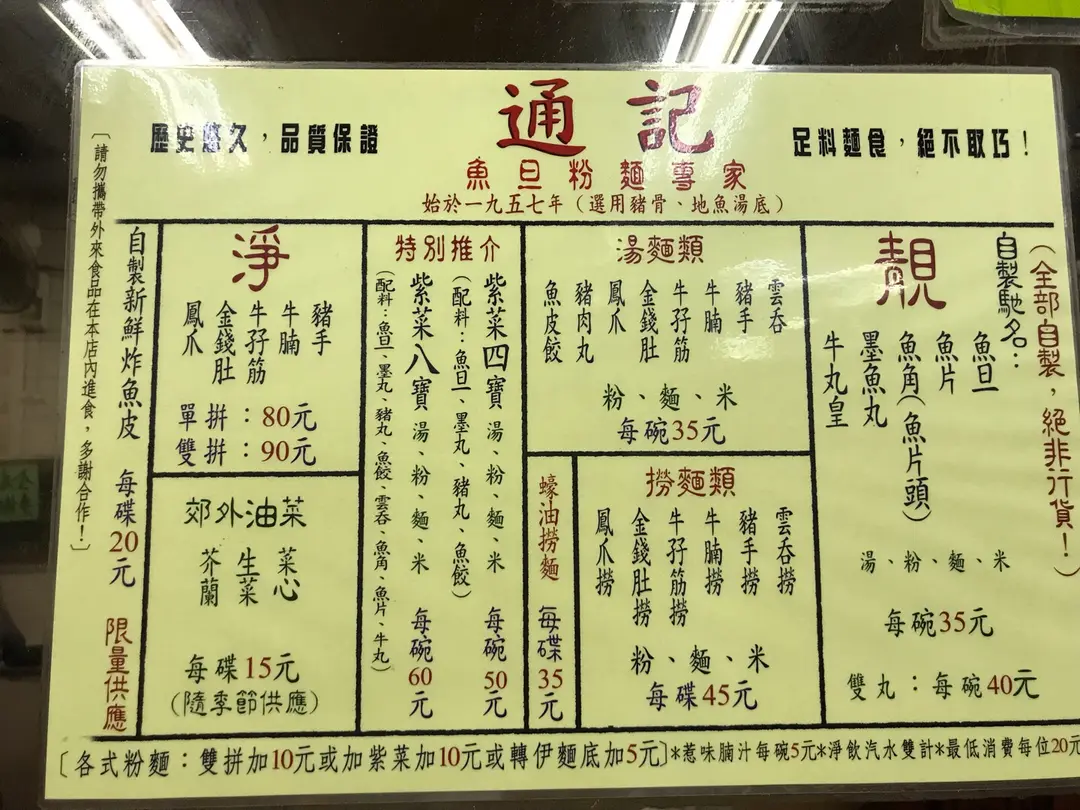 通記
歷史悠久，品質保證
足料麵食，絕不取巧！
魚旦粉麵專家
始於一九五七年（選用豬骨、地魚湯底）
（全部自製，絕非行貨！）
自製馳名：
靚
魚旦
魚片
魚角（魚片頭）
墨魚丸
牛丸皇
湯、粉、麵、米
每碗35元
雙丸：每碗40元
湯麵類
雲吞
豬手
牛腩
牛孖筋
金錢肚
鳳爪
豬肉丸
魚皮餃
粉、麵、米
每碗35元
撈麵類
雲吞撈
豬手撈
牛腩撈
牛孖筋撈
金錢肚撈
鳳爪撈
粉、麵、米
每碟45元
蠔油撈麵 每碟35元
特別推介
紫菜四寶湯、粉、麵、米 每碗50元
（配料：魚旦、墨丸、豬丸、魚餃）
紫菜八寶湯、粉、麵、米 每碗60元
（配料：魚旦、墨丸、豬丸、魚餃、雲吞、魚角、魚片、牛丸）
淨
豬手
牛腩
牛孖筋
金錢肚
鳳爪
單拼：80元
雙拼：90元
郊外油菜
菜心
生菜
芥蘭
每碟15元
（隨季節供應）
自製新鮮炸魚皮 每碟20元 限量供應
〔請勿攜帶外來食品在本店內進食，多謝合作！〕
〔各式粉麵：雙拼加10元或加紫菜加10元或轉伊麵底加5元〕*惹味腩汁每碗5元*淨飲汽水雙計*最低消費每位20元